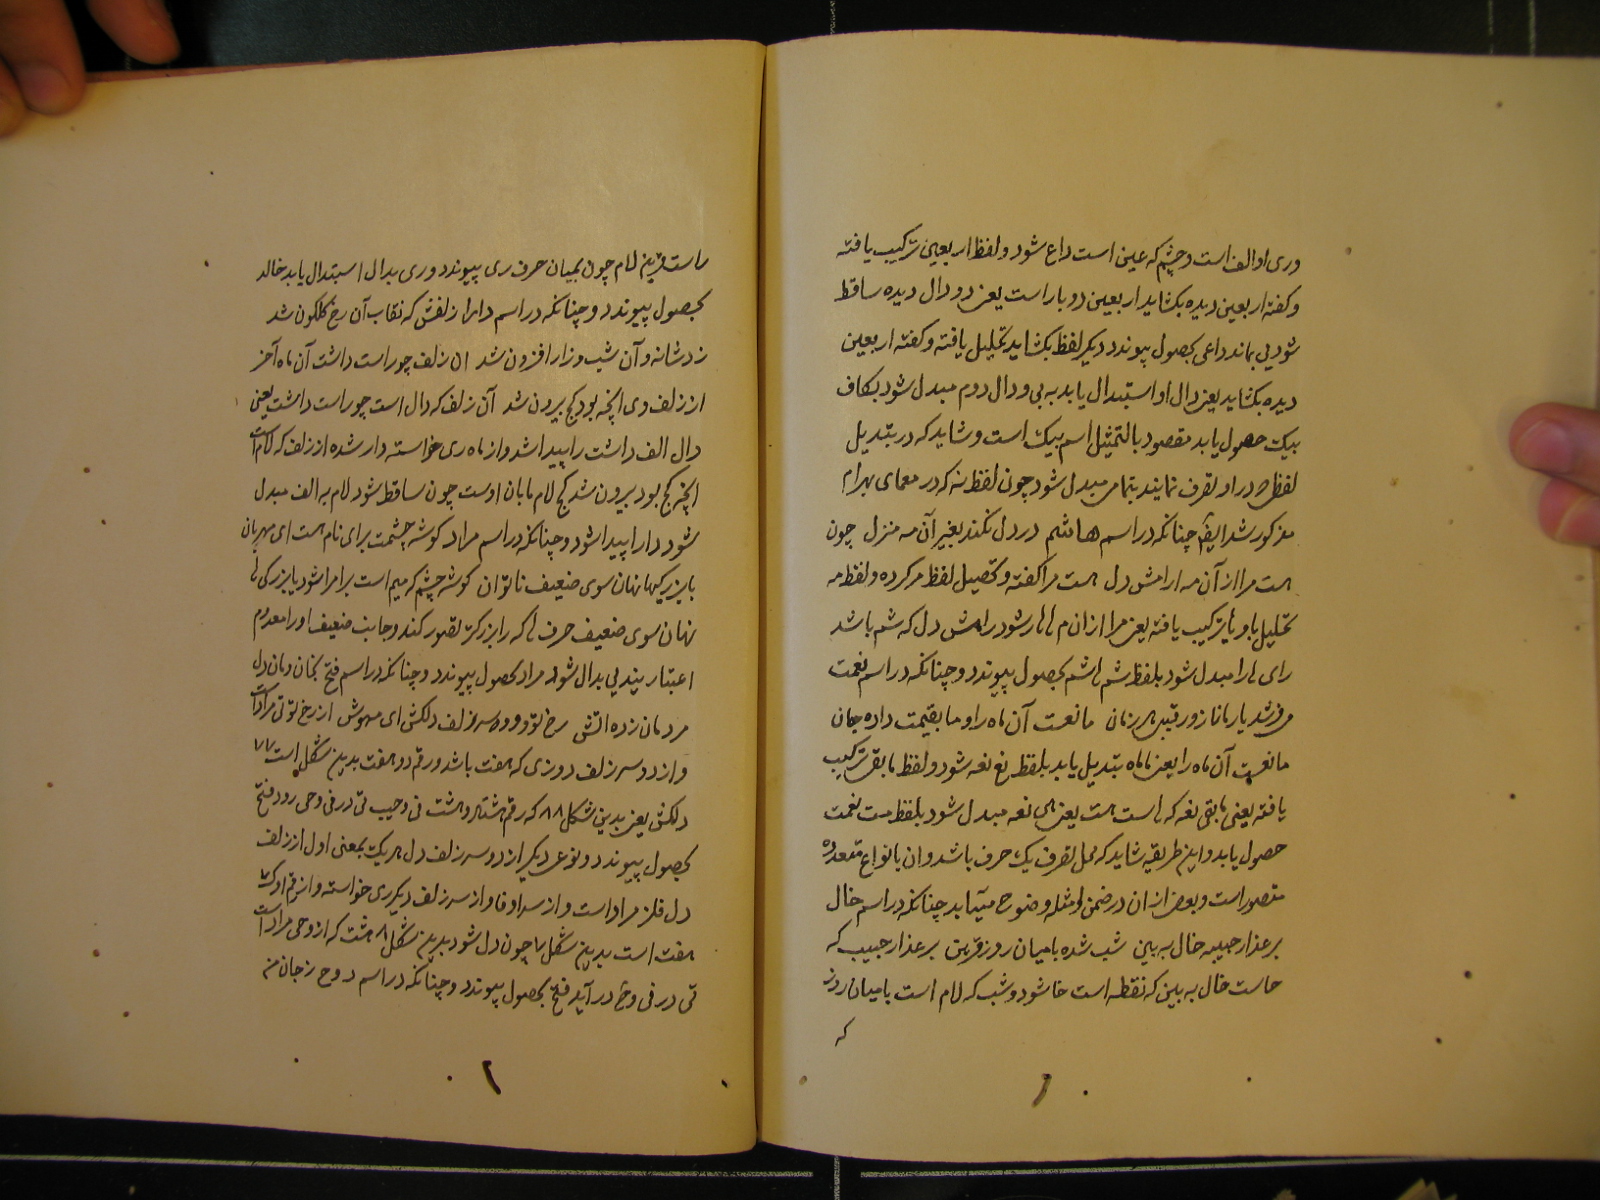 وری او الف است و چشم که عین است داع شود و لفظ اربعین ترکیب یافته
و کفته اربعین دیده بکشاید اربعین دو بار است یعنی دو دال دیده ساقط
شود یی بماند داعی بحصول پیوندد دیکر لفظ بکشاید تحلیل یافته و کفته اربعین
دیده بکشاید یعنی دال او استبدال یابد به بی و دال دوم مبدل شود بکاف
بیک حصول یابد مقصود بالتمثیل اسم بیک است و شاید که در تبدیل
لفظی در او تصرف نمایند بتمامی مبدل شود چون لفظ نه که در معمای بهرام
مذکور شد ایضا چنانکه در اسم هاشم در دل نکند بغیر آن مه منزل چون
هست مرا از آن مه ارامش دل هست مرا کفته و تحصیل لفظ مر کرده و لفظ مه
تحلیل یافته یعنی مرا از ان م شود رامش دل که شم باشد
رای را مبدل شود بلفظ شم هاشم بحصول پیوندد و چنانکه در اسم نعمت
یار مانا زو رقیب هر زمان ما نعمت آن ماه راو ما بقیمت داده جان
ما نعمت آن ماه را یعنی ماماه تبدیل یابد بلفظ نع نعه شود و لفظ مابقی ترکیب
یافته یعنی مابقی نعه که است هت یعنی های نعه مبدل شود بلفظ مت نعمت
حصول یابد و این طریقه شاید که محل تصرف یک حرف باشد و ان بانواع متعدده
متصور است و بعضی از ان در ضمن امثله وضوح مییابد چنانکه در اسم خال
بر عذار حبیب خال به بین شب شده با میان روز قرین بر عذار حبیب که
حاست خال به بین که نقطه است خا شود و شب که لام است با میان روز
که
راست قرین لام چون بمیان حرف ری پیوندد و ری بدال استبدال یابد خالد
بحصول پیوندد و چنانکه در اسم دارا از زلفش که نقاب آن رخ کلکون شد
زد شانه و آن شب و زار افزون شد ان زلف چو راست داشت آن ماه آخر
از زلف وی انچه بود کج بیرون شد آن زلف که دال است چو راست داشت یعنی
دال الف داشت را پیدا شد و از ماه ری خواسته دار شده از زلف که لام است
انچه کج بود بیرون شد کج لام مابان اوست چون ساقط شود لام به الف مبدل
شود دارا پیدا شود و چنانکه در اسم مراد کوشه چشمت برای نام هست ای مهربان
با بزرکیها نهان سوی ضعیف ناتوان کوشه چشم که میم است برا مرا شود با بزرکی
نهان سوی ضعیف حرف که را بزرکتر تصور کند و جانب ضعیف او را معدوم
اعتبار یی بدال شود مراد بحصول پیوندد و چنانکه در اسم فتح بخان و مان دل
مردمان زده اتش رخ تو و دو سه زلف دلکش ای مهوش از رخ تو تی مراد است
و از دو سه زلف دو زی که هفت باشد و رقم دو هفت بدین شکل است ۷۷
دلکش یعنی بدین شکل ۸۸ که رقم هشتاد و هشت فی و حیب تی در فی و حی رود فتح
بحصول پیوندد و نوعی دیکر از دو سه زلف دل هر یک بمعنی اول از زلف
دل فلز مراد است و از سه او فا و از سه زلف دیکر ری خواسته و از رقم او که
هفت است بدین شکل ۷ چون دل شود بدین شکل ۸ هشت که ازو حی مراد است
تی در فی و حی در آید فتح بحصول پیوندد و چنانکه در اسم روح ز جان من